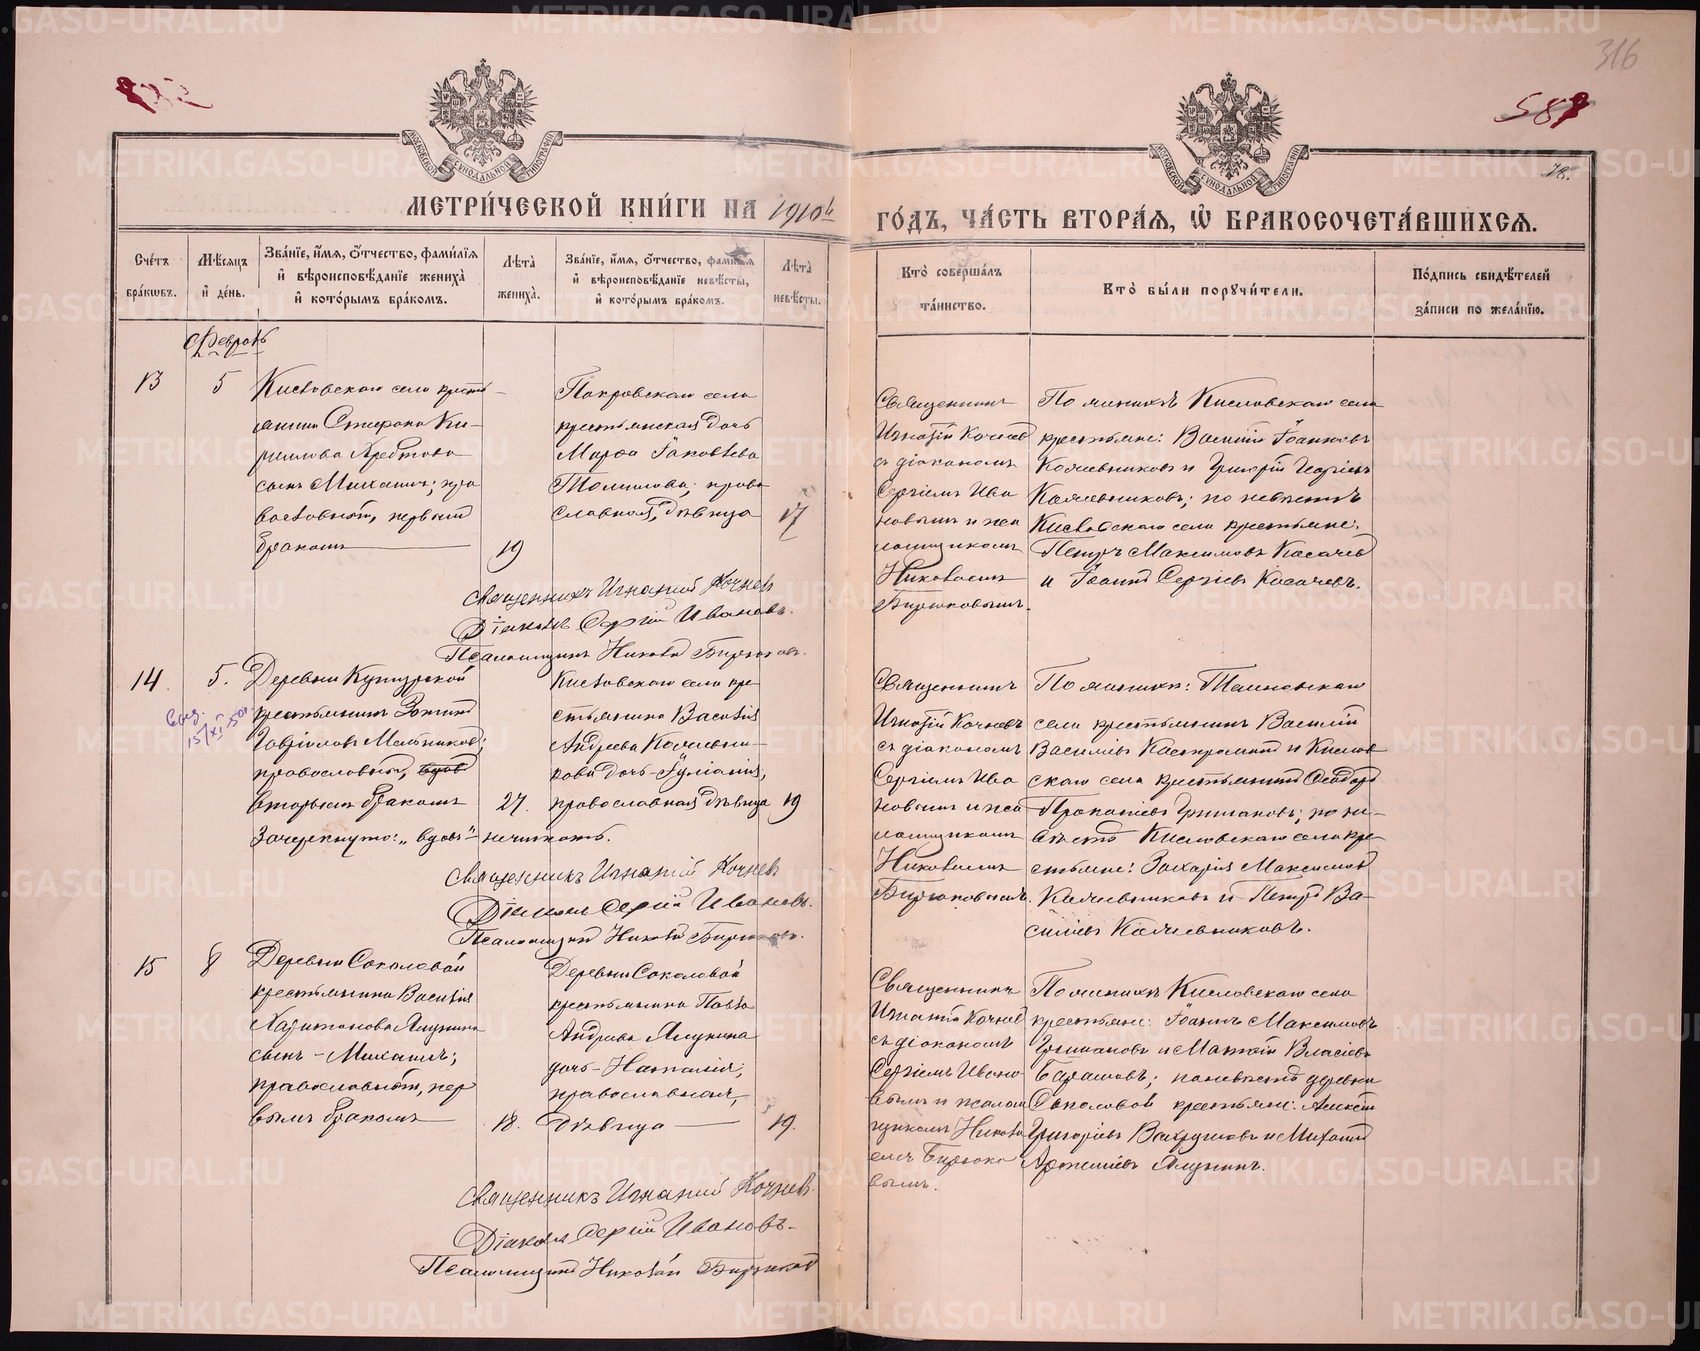 316
587
78.
МЕТРИЧЕСКОЙ КНИГИ НА 1910й
ГОДЪ, ЧАСТЬ ВТОРАЯ, Ѡ БРАКОСОЧЕТАВШИХСЯ.
Счетъ браковъ.
Мѣсяцъ и день.
Званіе, имя, отчество, фамилія и вѣроисповѣданіе жениха и которымъ бракомъ.
Лѣта жениха.
Званіе, имя, отчество, фамилія и вѣроисповѣданіе невѣсты, и которымъ бракомъ.
Лѣта невѣсты.
Кто совершалъ таинство.
Кто были поручители.
Подпись свидѣтелей записи по желанію.
Февраль
13
5
Кисловскаго села крестья-
нина Стефана Ки-
риллова
сынъ Михаилъ; пра
вославный, первымъ
бракомъ
19
Покровскаго села
крестьянская дочь
Марѳа Іаковлева
Толмачова; право
славная, дѣвица
17
Священникъ
Игнатій Кочневъ
съ діакономъ
Сергіемъ Ива
новымъ и пса
ломщикомъ
Николаемъ
Бирюковымъ.
По женихѣ Кисловскаго села
крестьяне: Василій Іоанновъ
Колчевниковъ и Григорій Георгіевъ
Колчевниковъ; по невѣстѣ
Кисловскаго села крестьяне:
Петръ Максимовъ Косачевъ
и Іоаннъ Сергіевъ Косачевъ.
Священникъ Игнатій Кочневъ
Діаконъ Сергій Ивановъ.
Псаломщикъ Николай Бирюковъ.
14
5.
Деревни
крестьянинъ
Гавріиловъ Мельниковъ;
православный, вдовъ
вторымъ бракомъ
27.
Зачеркнуто: „вдовъ“ не читать.
Кисловскаго села кре
стьянина Василія
Андреева Колчевни-
кова дочь Іуліанія,
православная дѣвица
19
Священникъ
Игнатій Кочневъ
съ діакономъ
Сергіемъ Ива
новымъ и пса
ломщикомъ
Николаемъ
Бирюковымъ.
По женихѣ:
села крестьянинъ Василій
Василіевъ Костромин и Кислов
скаго села крестьянинъ Ѳеодоръ
Прокопіевъ Гришановъ; по не-
вѣстѣ Кисловскаго села кре
стьяне: Захарія Максимовъ
Колчевниковъ и Петръ Ва-
силіевъ Колчевниковъ.
Священникъ Игнатій Кочневъ
Діаконъ Сергій Ивановъ.
Псаломщикъ Николай Бирюковъ.
15
8
Деревни Соколовой
крестьянина Василія
Харитонова Ялунина
сынъ - Михаилъ;
православный, пер
вымъ бракомъ
18.
Деревни Соколовой
крестьянина Павла
Андреева Ялунина
дочь - Наталія;
православная,
дѣвица
19.
Священникъ
Игнатій Кочневъ
съ діакономъ
Сергіемъ Ивано
вымъ и псалом
щикомъ Никола
емъ Бирюко
вымъ.
По женихѣ Кисловскаго села
крестьяне: Іоаннъ Максимовъ
Гришановъ и Матѳій Власіевъ
Барашовъ; по невѣстѣ деревни
Соколовой крестьяне: Алексѣй
Григоріевъ Вахрушевъ и Михаилъ
Артеміевъ Ялунинъ.
Священникъ Игнатій Кочневъ.
Діаконъ Сергій Ивановъ-
Псаломщикъ Николай Бирюковъ
METRIKI.GASO-URAL.RU